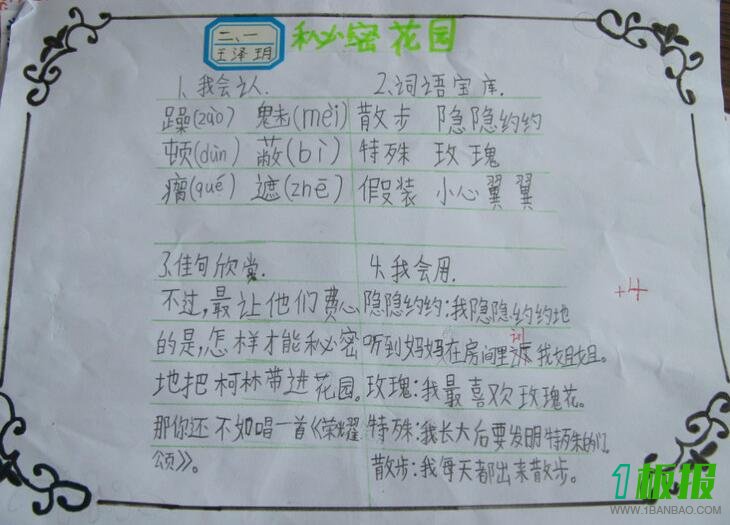 二、一
王泽玥
秘密花园
1、我会认.
躁(zào) 魅(mèi)
顿(dùn) 蔽(bì)
瘸(qué) 遮(zhē)
2、词语宝库.
散步 隐隐约约
特殊 玫瑰
假装 小心翼翼
3.佳句欣赏.
不过,最让他们费心
的是,怎样才能秘密
地把柯林带进花园。
那你还不如唱一首《荣耀
颂》。
4.我会用.
隐隐约约:我隐隐约约地
听到妈妈在房间里训我姐姐。
玫瑰:我最喜欢玫瑰花。
特殊:我长大后要发明特殊的门。
散步:我每天都出来散步。
+4
1板报
WWW.1BANBAO.COM